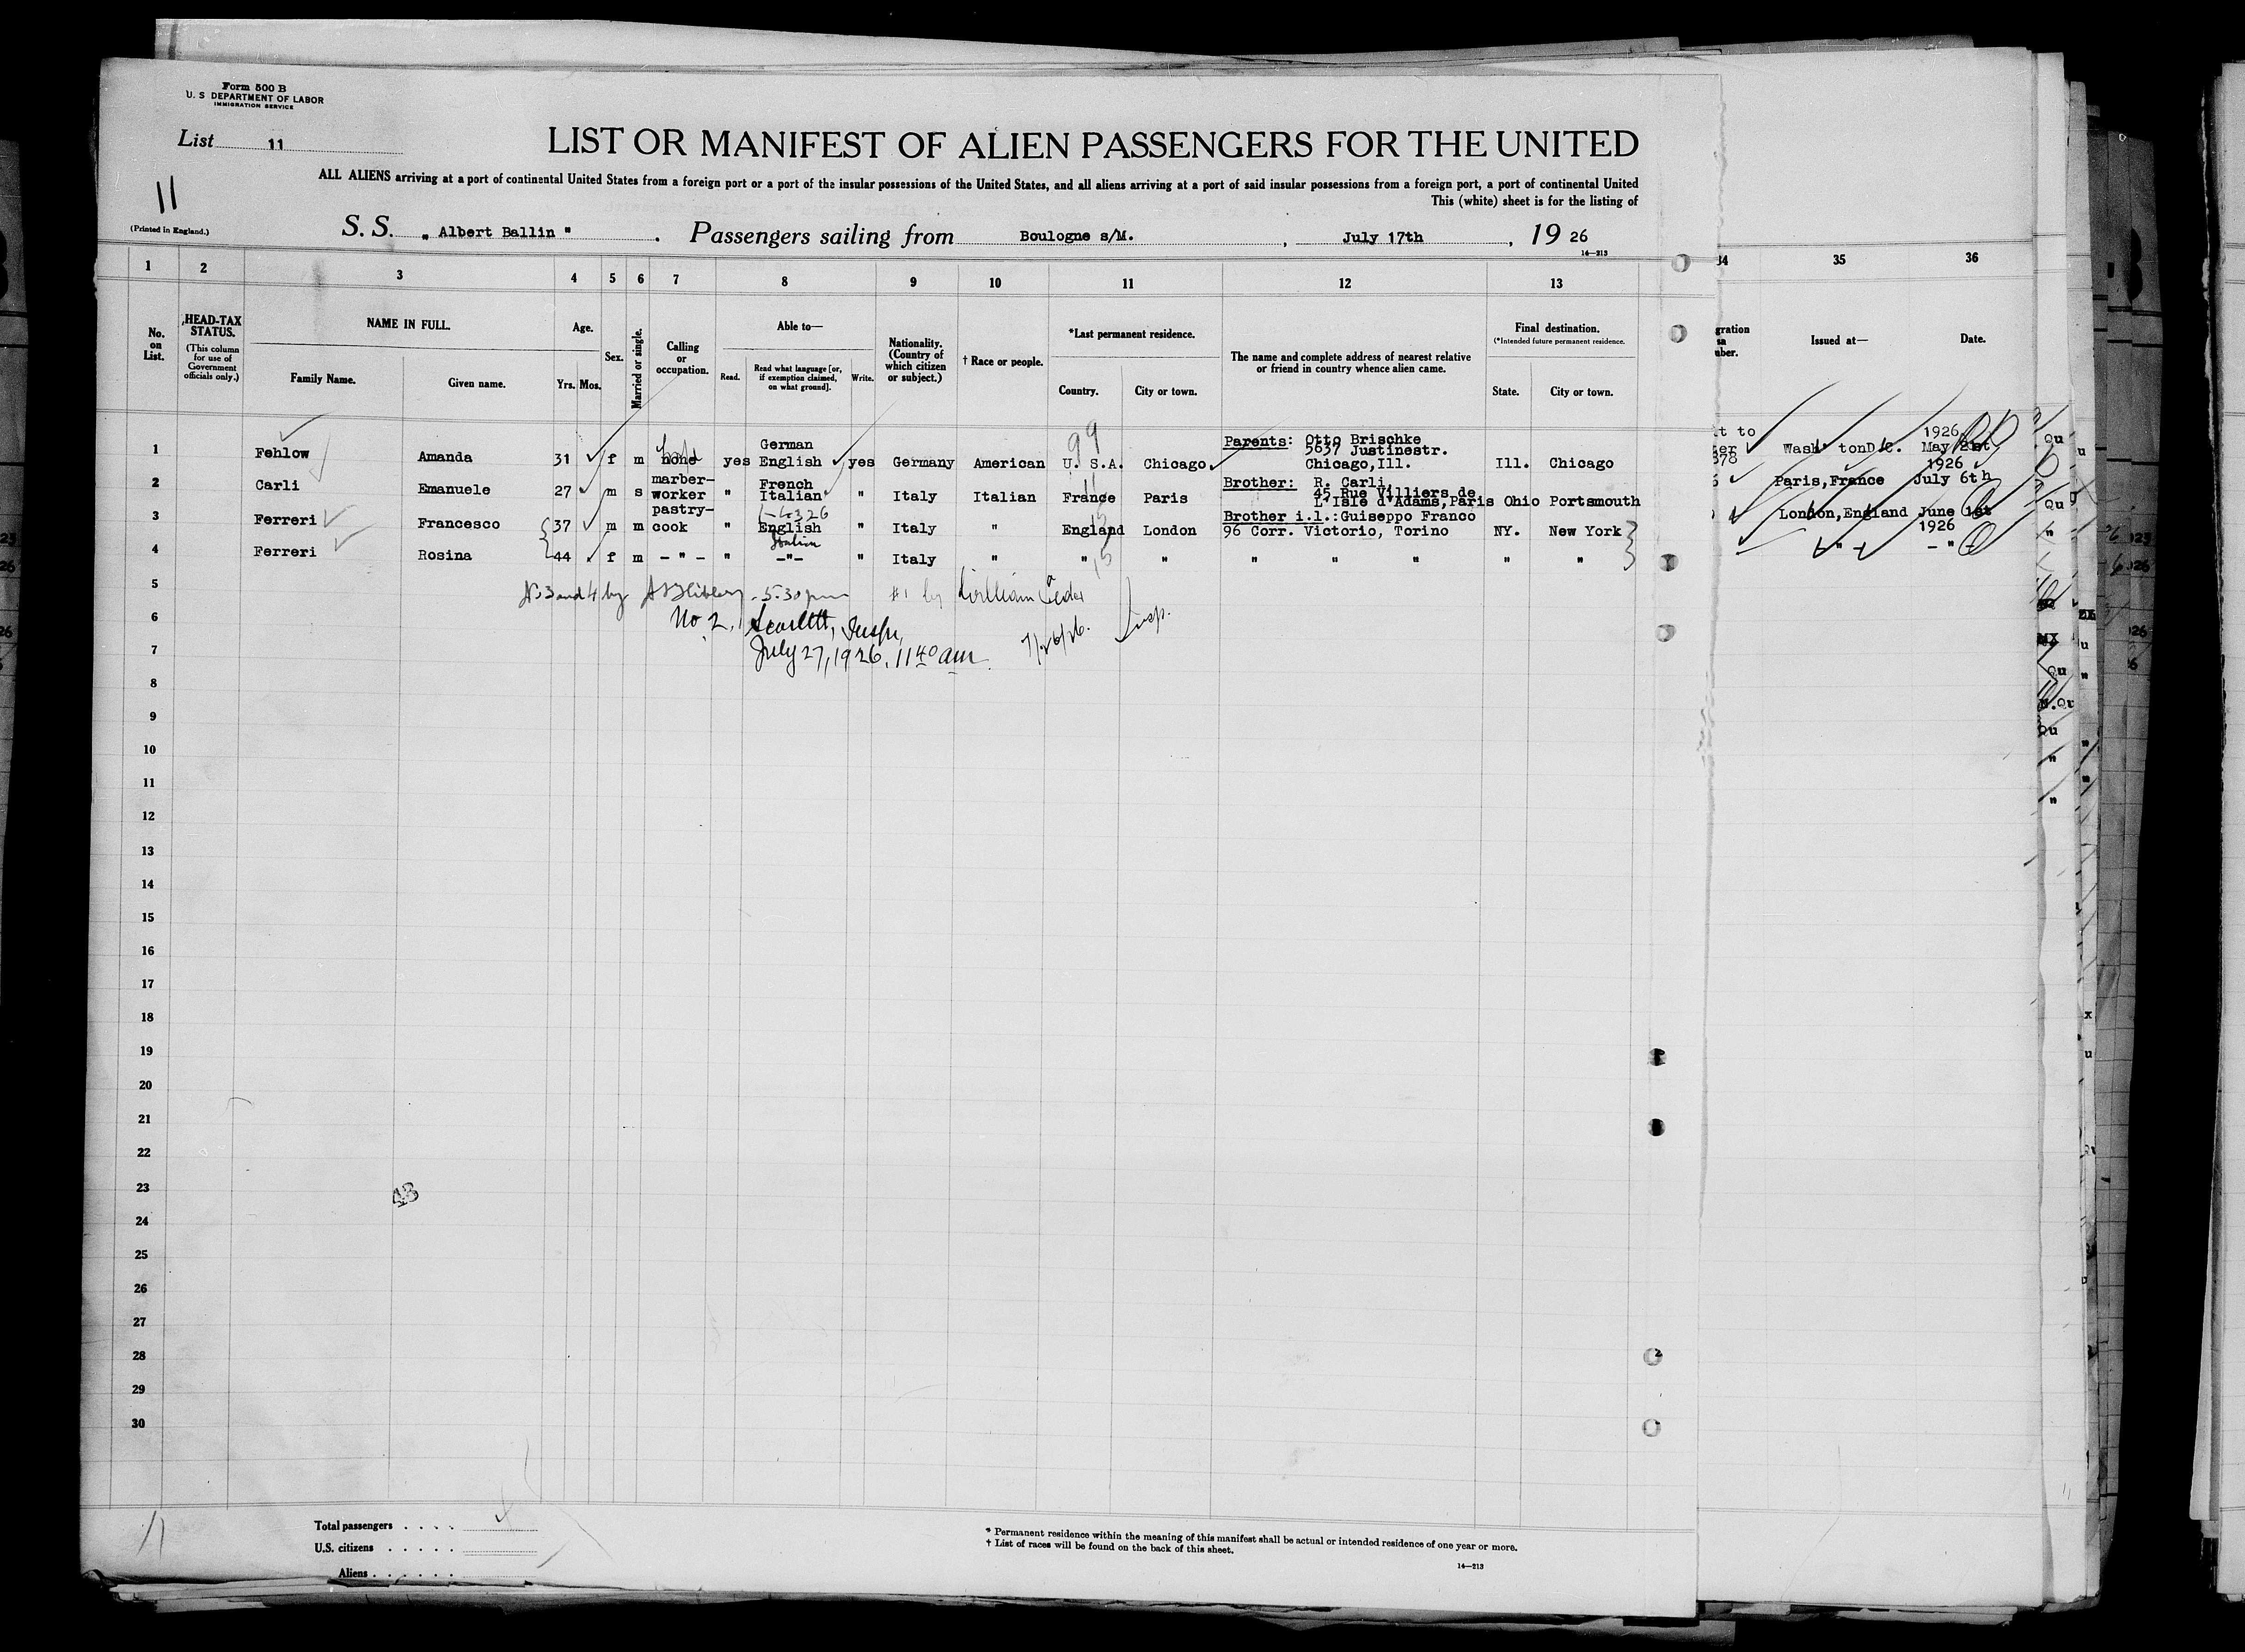 Form 500 B
U. S DEPARTMENT OF LABOR
IMMIGRATION SERVICE
List 11
LIST OR MANIFEST OF ALIEN PASSENGERS FOR THE UNITED
ALL ALIENS arriving at a port of continental United States from a foreign port or a port of the insular possessions of the United States, and all aliens arriving at a port of said insular possessions from a foreign port, a port of continental United
This (white) sheet is for the listing of
11
(Printed in England.)
S. S. „ Albert Ballin " . Passengers sailing from Boulogne s/M. , July 17th , 19 26
14—213
1 2 3 4 5 6 7 8 9 10 11 12 13 34 35 36
No. on List.
HEAD-TAX STATUS.
(This column for use of Government officials only.)
NAME IN FULL.
Family Name. Given name.
Age.
Yrs. Mos.
Sex.
Married or single.
Calling or occupation.
Able to—
Read. Read what language [or, if exemption claimed, on what ground]. Write.
Nationality. (Country of which citizen or subject.)
† Race or people.
*Last permanent residence.
Country. City or town.
The name and complete address of nearest relative or friend in country whence alien came.
Final destination.
(*Intended future permanent residence.
State. City or town.
Issued at— Date.
99
1 Fehlow Amanda 31 f m none yes German English yes Germany American U. S.A. Chicago Parents: Otto Brischke 5637 Justinestr. Chicago,Ill. Ill. Chicago Wash' tonD.C. 1926 May 21st
2 Carli Emanuele 27 m s marber-worker " French Italian " Italy Italian France Paris Brother: R. Carli 45 Rue Villiers de L'Isle d'Adams,Paris Ohio Portsmouth Paris,France 1926 July 6th
3 Ferreri Francesco 37 m m pastry-cook " English " Italy " England London Brother i.l.:Guiseppo Franco 96 Corr. Victorio, Torino NY. New York London,England June 1st 1926
Italian
4 Ferreri Rosina 44 f m - " - " -"- " Italy " " " " " " " " " - " -
5
No 3 and 4 by 5:30 pm #1 by William Insp.
6
No 2, Scarlett, Inspr,
7/26/26.
7
July 27, 1926, 11 40 am.
8
9
10
11
12
13
14
15
16
17
18
19
20
21
22
23
48
24
25
26
27
28
29
30
11
Total passengers . . . .
U.S. citizens . . . . .
Aliens . . . . . .
* Permanent residence within the meaning of this manifest shall be actual or intended residence of one year or more.
† List of races will be found on the back of this sheet.
14—213